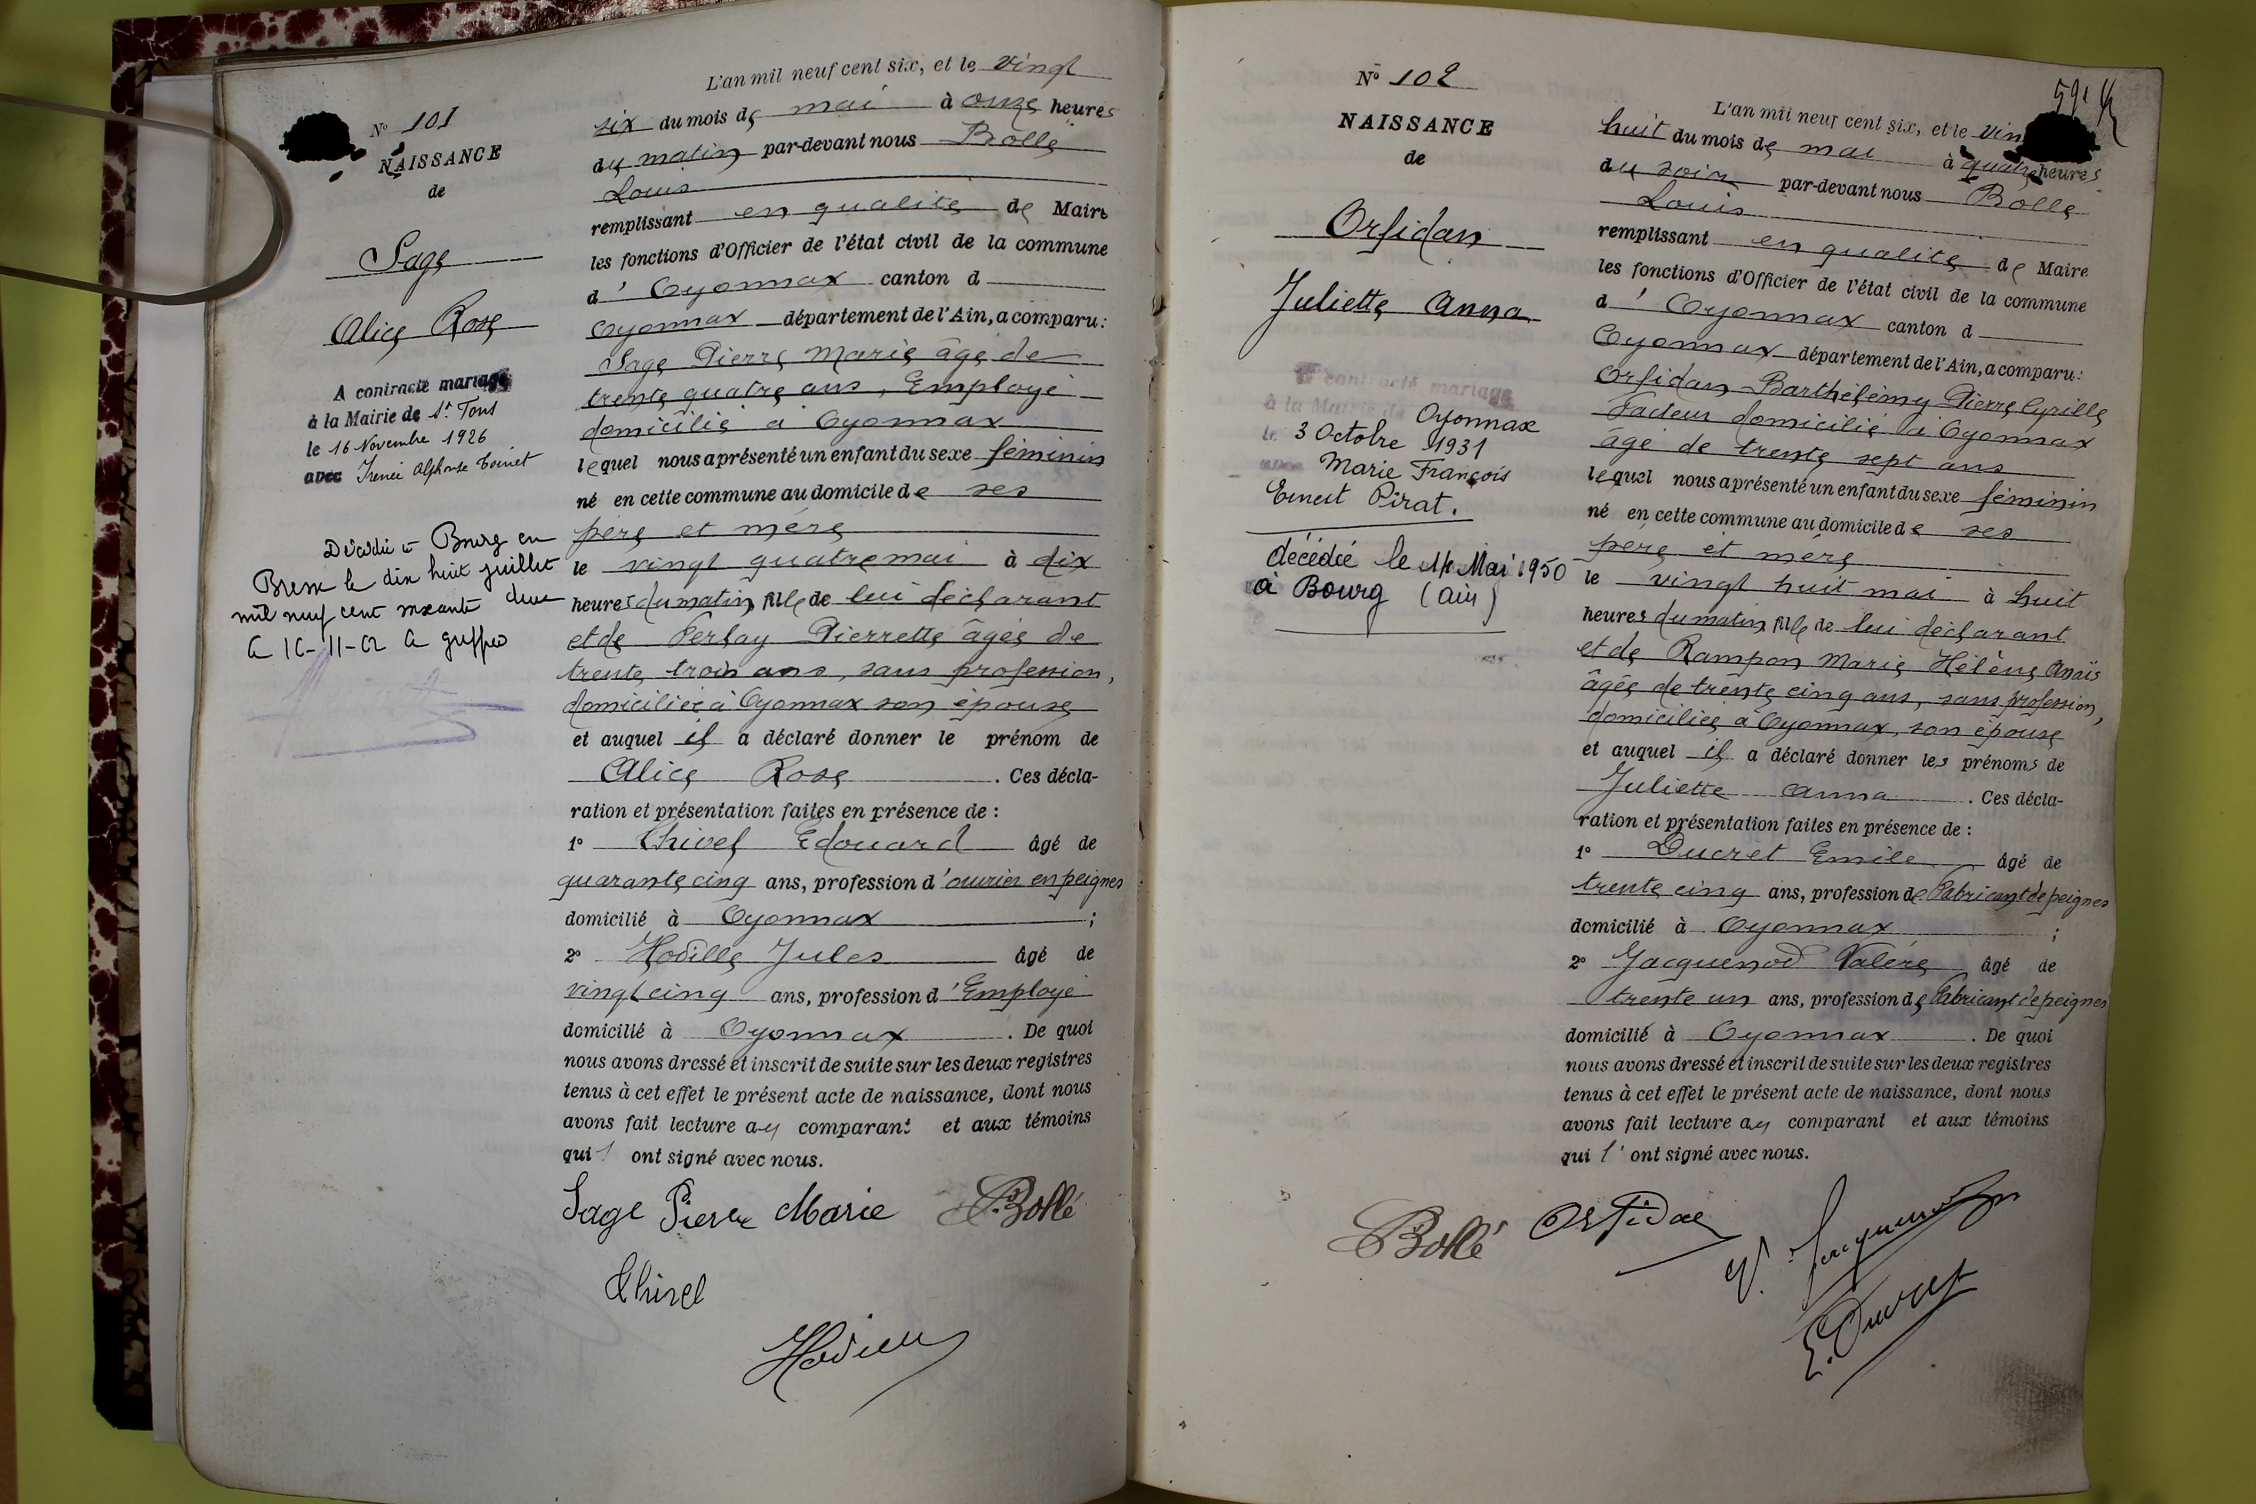 N° 101
NAISSANCE
de
Sage
Alice Rose
A contracté mariage
à la Mairie de St
le 16 Novembre 1926
avec Irénée Alphonse
Décédée à Bourg en
Bresse le dix huit juillet
mil neuf cent soixante deux
L'an mil neuf cent six, et le vingt
six du mois de mai à onze heures
du matin par-devant nous Bollé
Louis
remplissant en qualité de Maire
les fonctions d'Officier de l'état civil de la commune
d' Oyonnax canton d
Oyonnax département de l'Ain, a comparu :
Sage Pierre Marie âgé de
trente quatre ans, Employé
domicilié à Oyonnax
lequel nous a présenté un enfant du sexe féminin
né en cette commune au domicile de ses
père et mère
le vingt quatre mai à dix
heures du matin fille de lui déclarant
et de Ferlay Pierrette âgée de
trente trois ans, sans profession,
domiciliée à Oyonnax son épouse
et auquel il a déclaré donner le prénom de
Alice Rose . Ces décla-
ration et présentation faites en présence de :
1° Thivel Edouard âgé de
quarante cinq ans, profession d'ouvrier en peignes
domicilié à Oyonnax ;
2° Hodille Jules âgé de
vingt cinq ans, profession d'Employé
domicilié à Oyonnax . De quoi
nous avons dressé et inscrit de suite sur les deux registres
tenus à cet effet le présent acte de naissance, dont nous
avons fait lecture au comparant et aux témoins
qui l' ont signé avec nous.
Sage Pierre Marie L. Bollé
Thivel
Hodille
N° 102
NAISSANCE
de
Orfidan
Juliette Anna
A contracté mariage
à la Mairie de Oyonnax
le 3 Octobre 1931
avec Marie François
Ernest Pirat.
décédée le 14 Mai 1950
à Bourg (Ain)
L'an mil neuf cent six, et le vin
huit du mois de mai à quatre heures
du soir par-devant nous Bollé
Louis
remplissant en qualité de Maire
les fonctions d'Officier de l'état civil de la commune
d' Oyonnax canton d
Oyonnax département de l'Ain, a comparu :
Orfidan Barthélémy Pierre Cyrille
Facteur domicilié à Oyonnax
âgé de trente sept ans
lequel nous a présenté un enfant du sexe féminin
né en cette commune au domicile de ses
père et mère
le vingt huit mai à huit
heures du matin fille de lui déclarant
et de Rampon Marie Hélène Anaïs
âgée de trente cinq ans, sans profession,
domiciliée à Oyonnax, son épouse
et auquel il a déclaré donner les prénoms de
Juliette Anna . Ces décla-
ration et présentation faites en présence de :
1° Ducret Emile âgé de
trente cinq ans, profession de Fabricant de peignes
domicilié à Oyonnax ;
2° Jacquenod Valère âgé de
trente un ans, profession de Fabricant de peignes
domicilié à Oyonnax . De quoi
nous avons dressé et inscrit de suite sur les deux registres
tenus à cet effet le présent acte de naissance, dont nous
avons fait lecture au comparant et aux témoins
qui l' ont signé avec nous.
Bollé Orfidan V. Jacquenod
E. Ducret